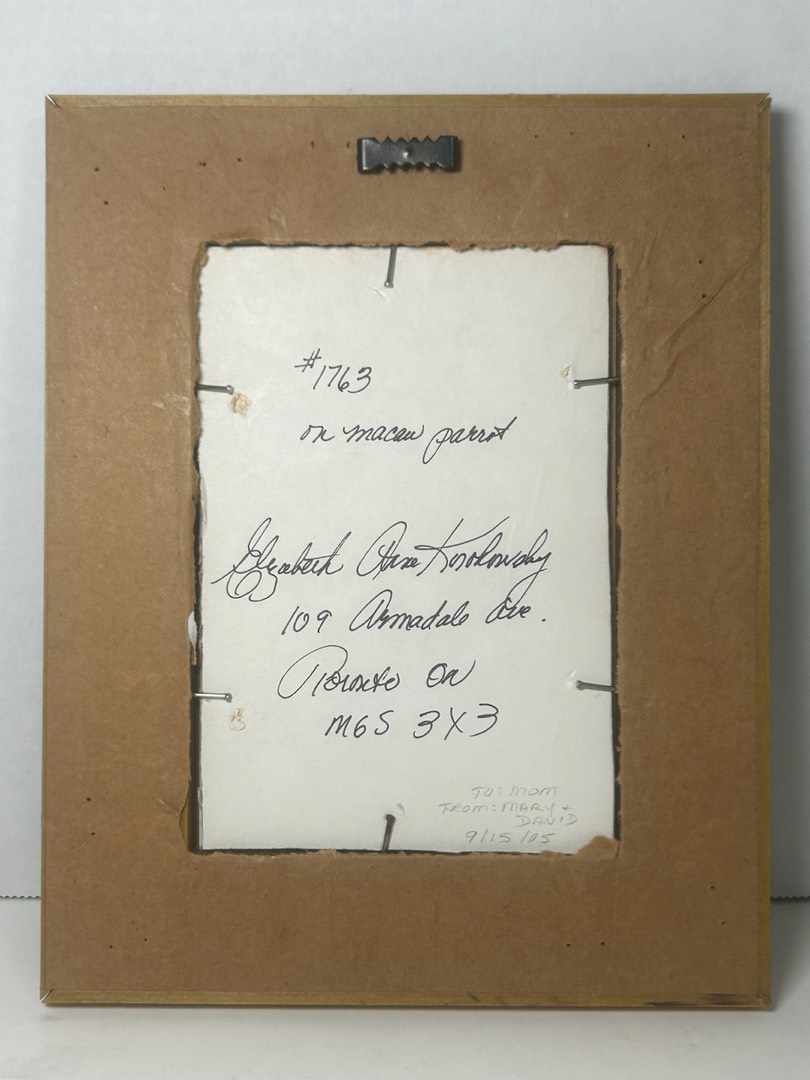 #1763
on macaw parrot
Elizabeth Anne
109 Armadale Ave.
Toronto ON
M6S 3X3
TO: MOM
FROM: MARY +
DAVID
9/15/05